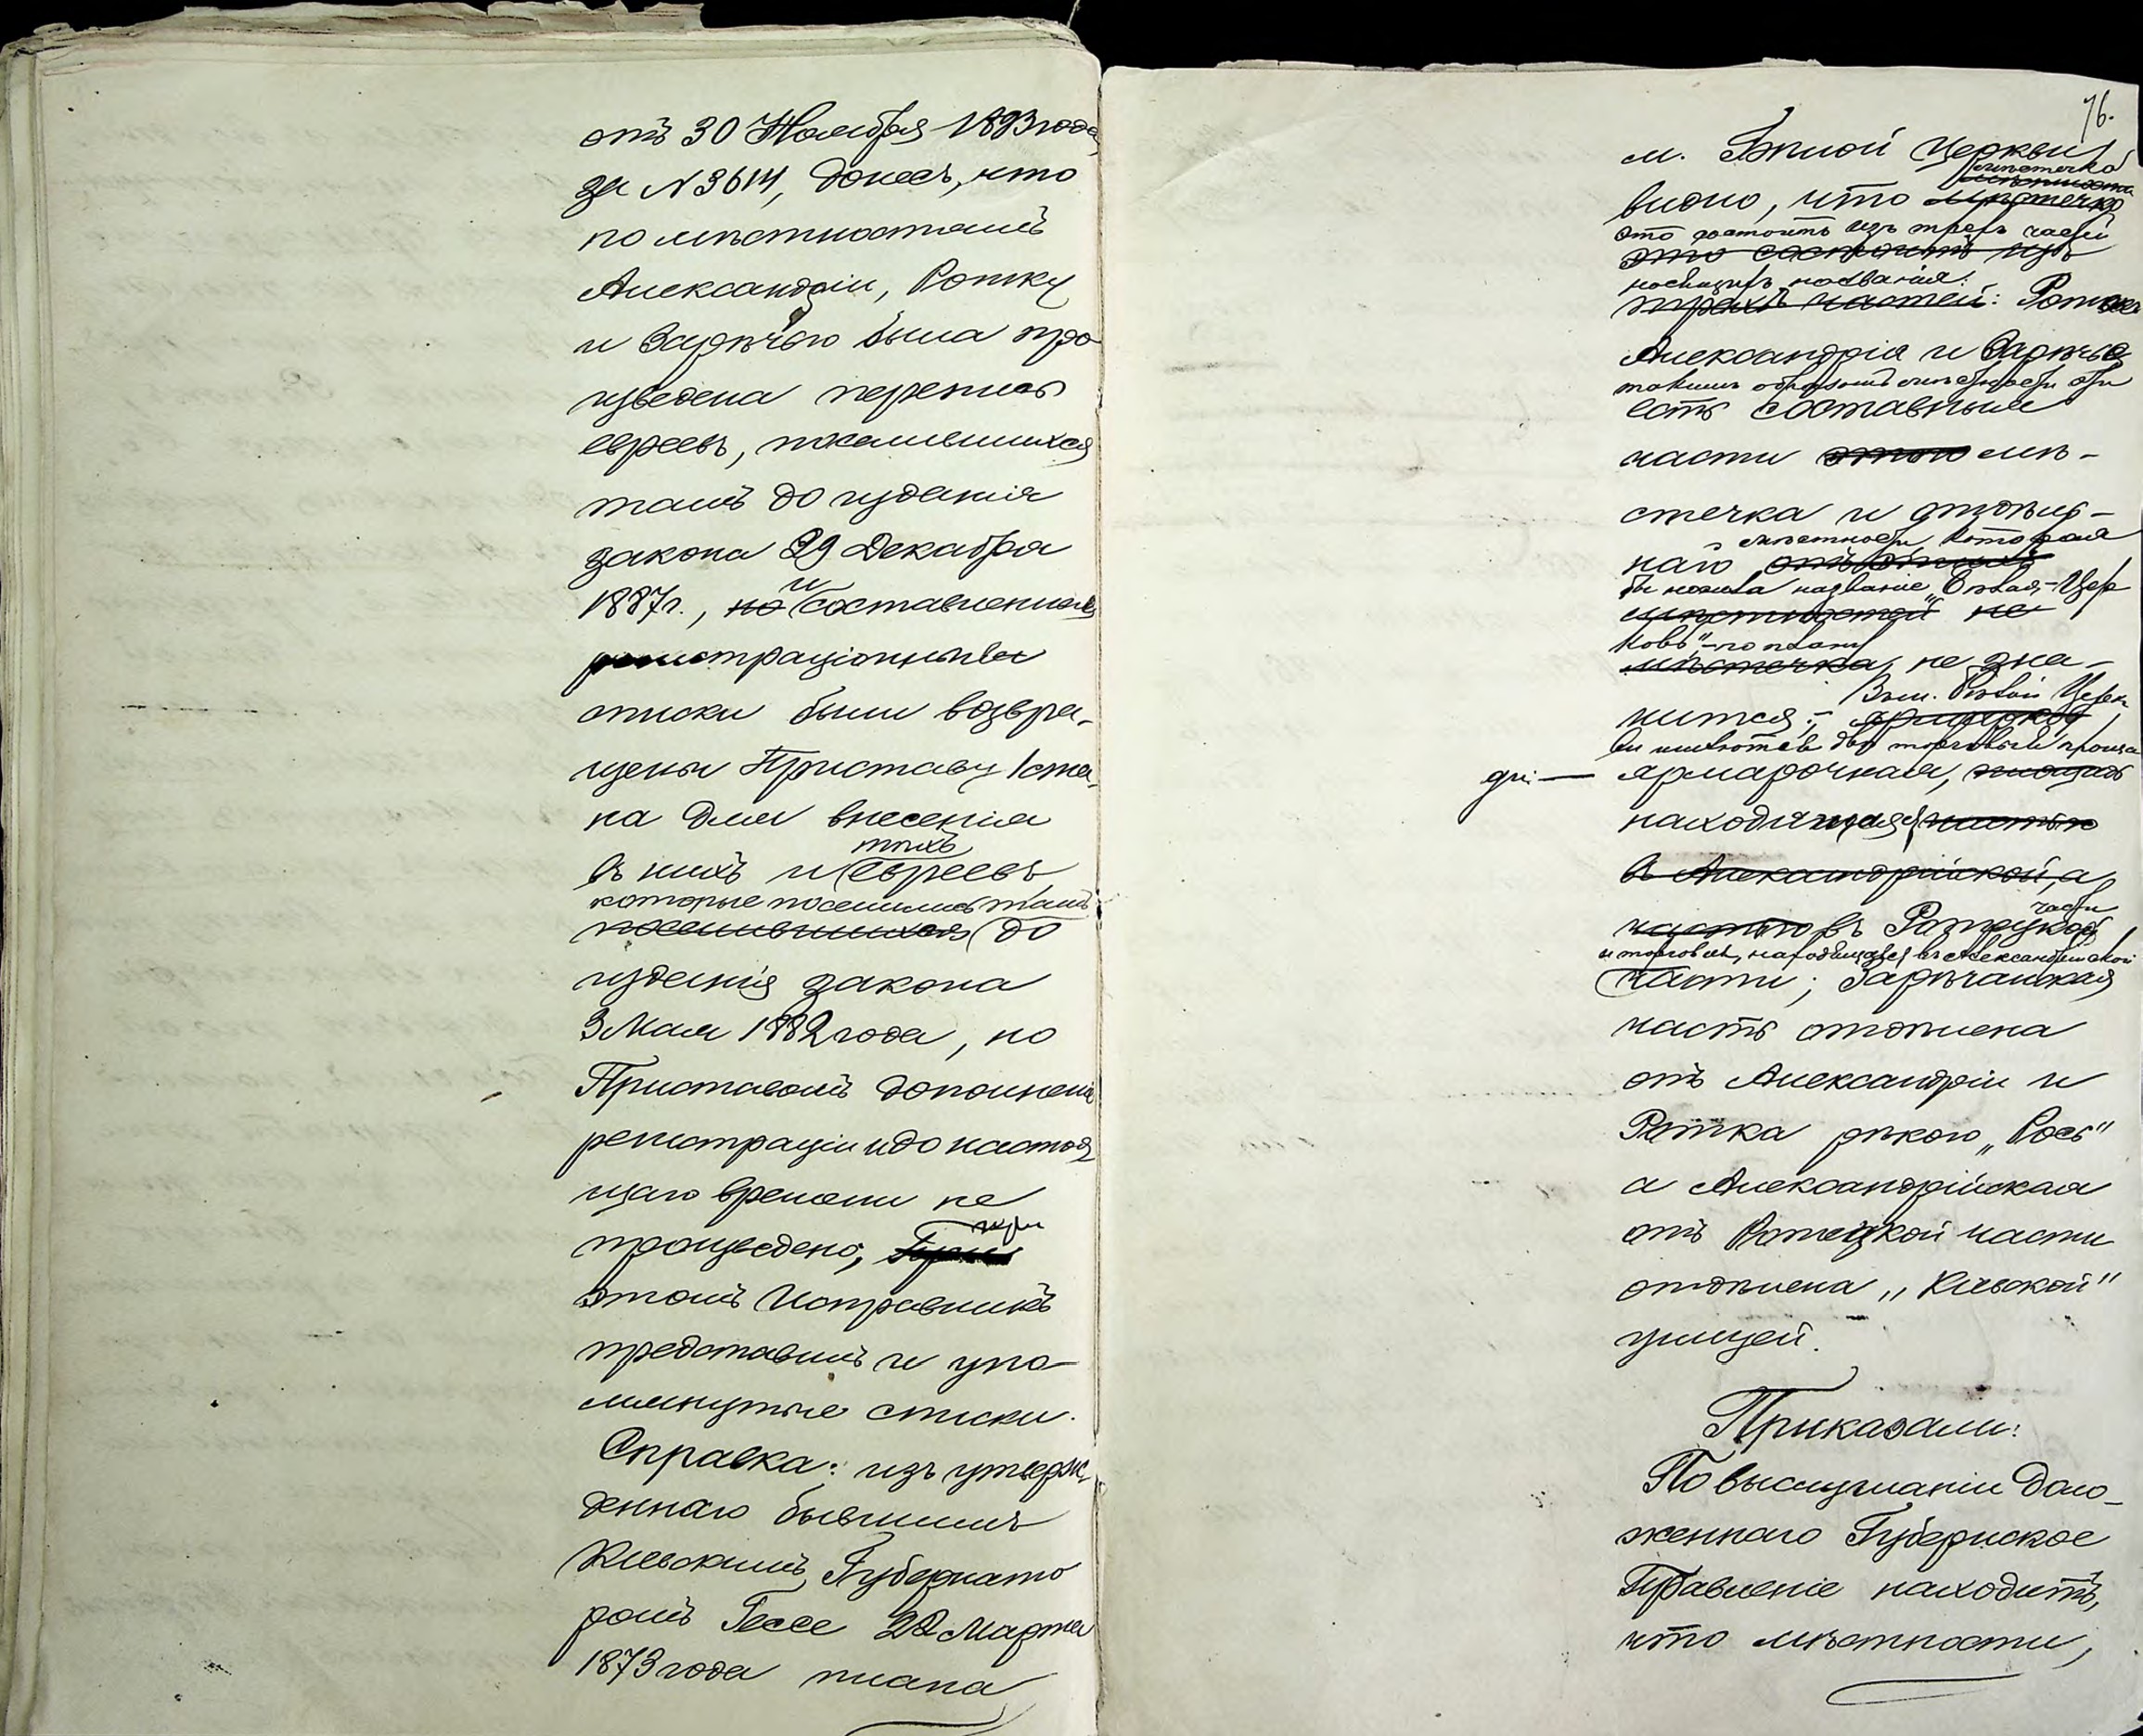 отъ 30 Ноября 1893 года
за N 3614, донесъ, что
по мѣстностямъ
Александріи, Ротку
и Зарѣчью была про
изведена перепись
евреевъ, поселившихся
тамъ до изданія
закона 29 Декабря
1887г., но и составленные
регистраціонные
списки были возвра-
щены Приставу 1 ста
на для внесенія
тѣхъ
въ нихъ и евреевъ
которые поселились тамъ
поселившихся до
изданія закона
3 Мая 1882 года, но
Приставомъ дополненія
регистраціи и до настоя
щаго времени не
при
произведено, При
этомъ Исправникъ
представилъ и упо
мянутые списки.
Справка: изъ утверж
деннаго бывшимъ
Кіевскимъ Губернато
ромъ Гессе 22 Марта
1873 года плана
76.
м. Бѣлой Церкви
мѣстечко
видно, что мѣстечко
это состоитъ изъ трехъ частей
это состоитъ изъ
носящихъ названія:
трехъ частей: Ротокъ
Александрія и Зарѣчье
такимъ образомъ мѣстности эти
есть составныя
части этого мѣ-
стечка и отдѣль-
мѣстности которая
наго отъ этихъ
бы носила названіе „Бѣлая-Цер
мѣстностей не
ковь"-по плану
мѣстечка, не зна-
Въ м. Бѣлой Церк
чится;-
ви имѣются двѣ торговыя площа
ди — ярмарочная, площадь
находящаяся частью
въ Александрійской, а
части
частью въ Ротецкой
и торговая, находящаяся въ Александрійской
части; Зарѣчанская
часть отдѣлена
отъ Александріи и
Ротка рѣкою „Рось"
а Александрійская
отъ Ротецкой части
отдѣлена „Кіевской"
улицей.
Приказали:
По выслушаніи доло-
женнаго Губернское
Правленіе находитъ,
что мѣстности,